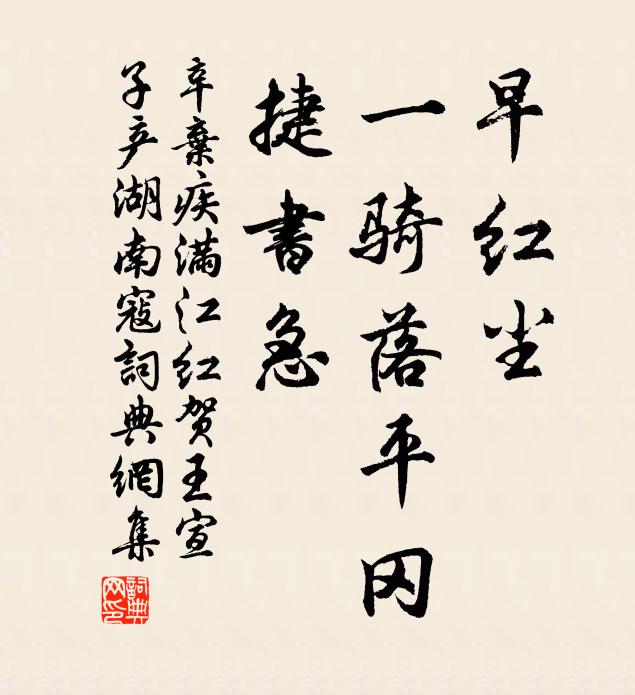 早红尘
一骑落平冈
捷書急
辛棄疾满江红贺王宣
子产湖南寇詞典網集
詞典网印